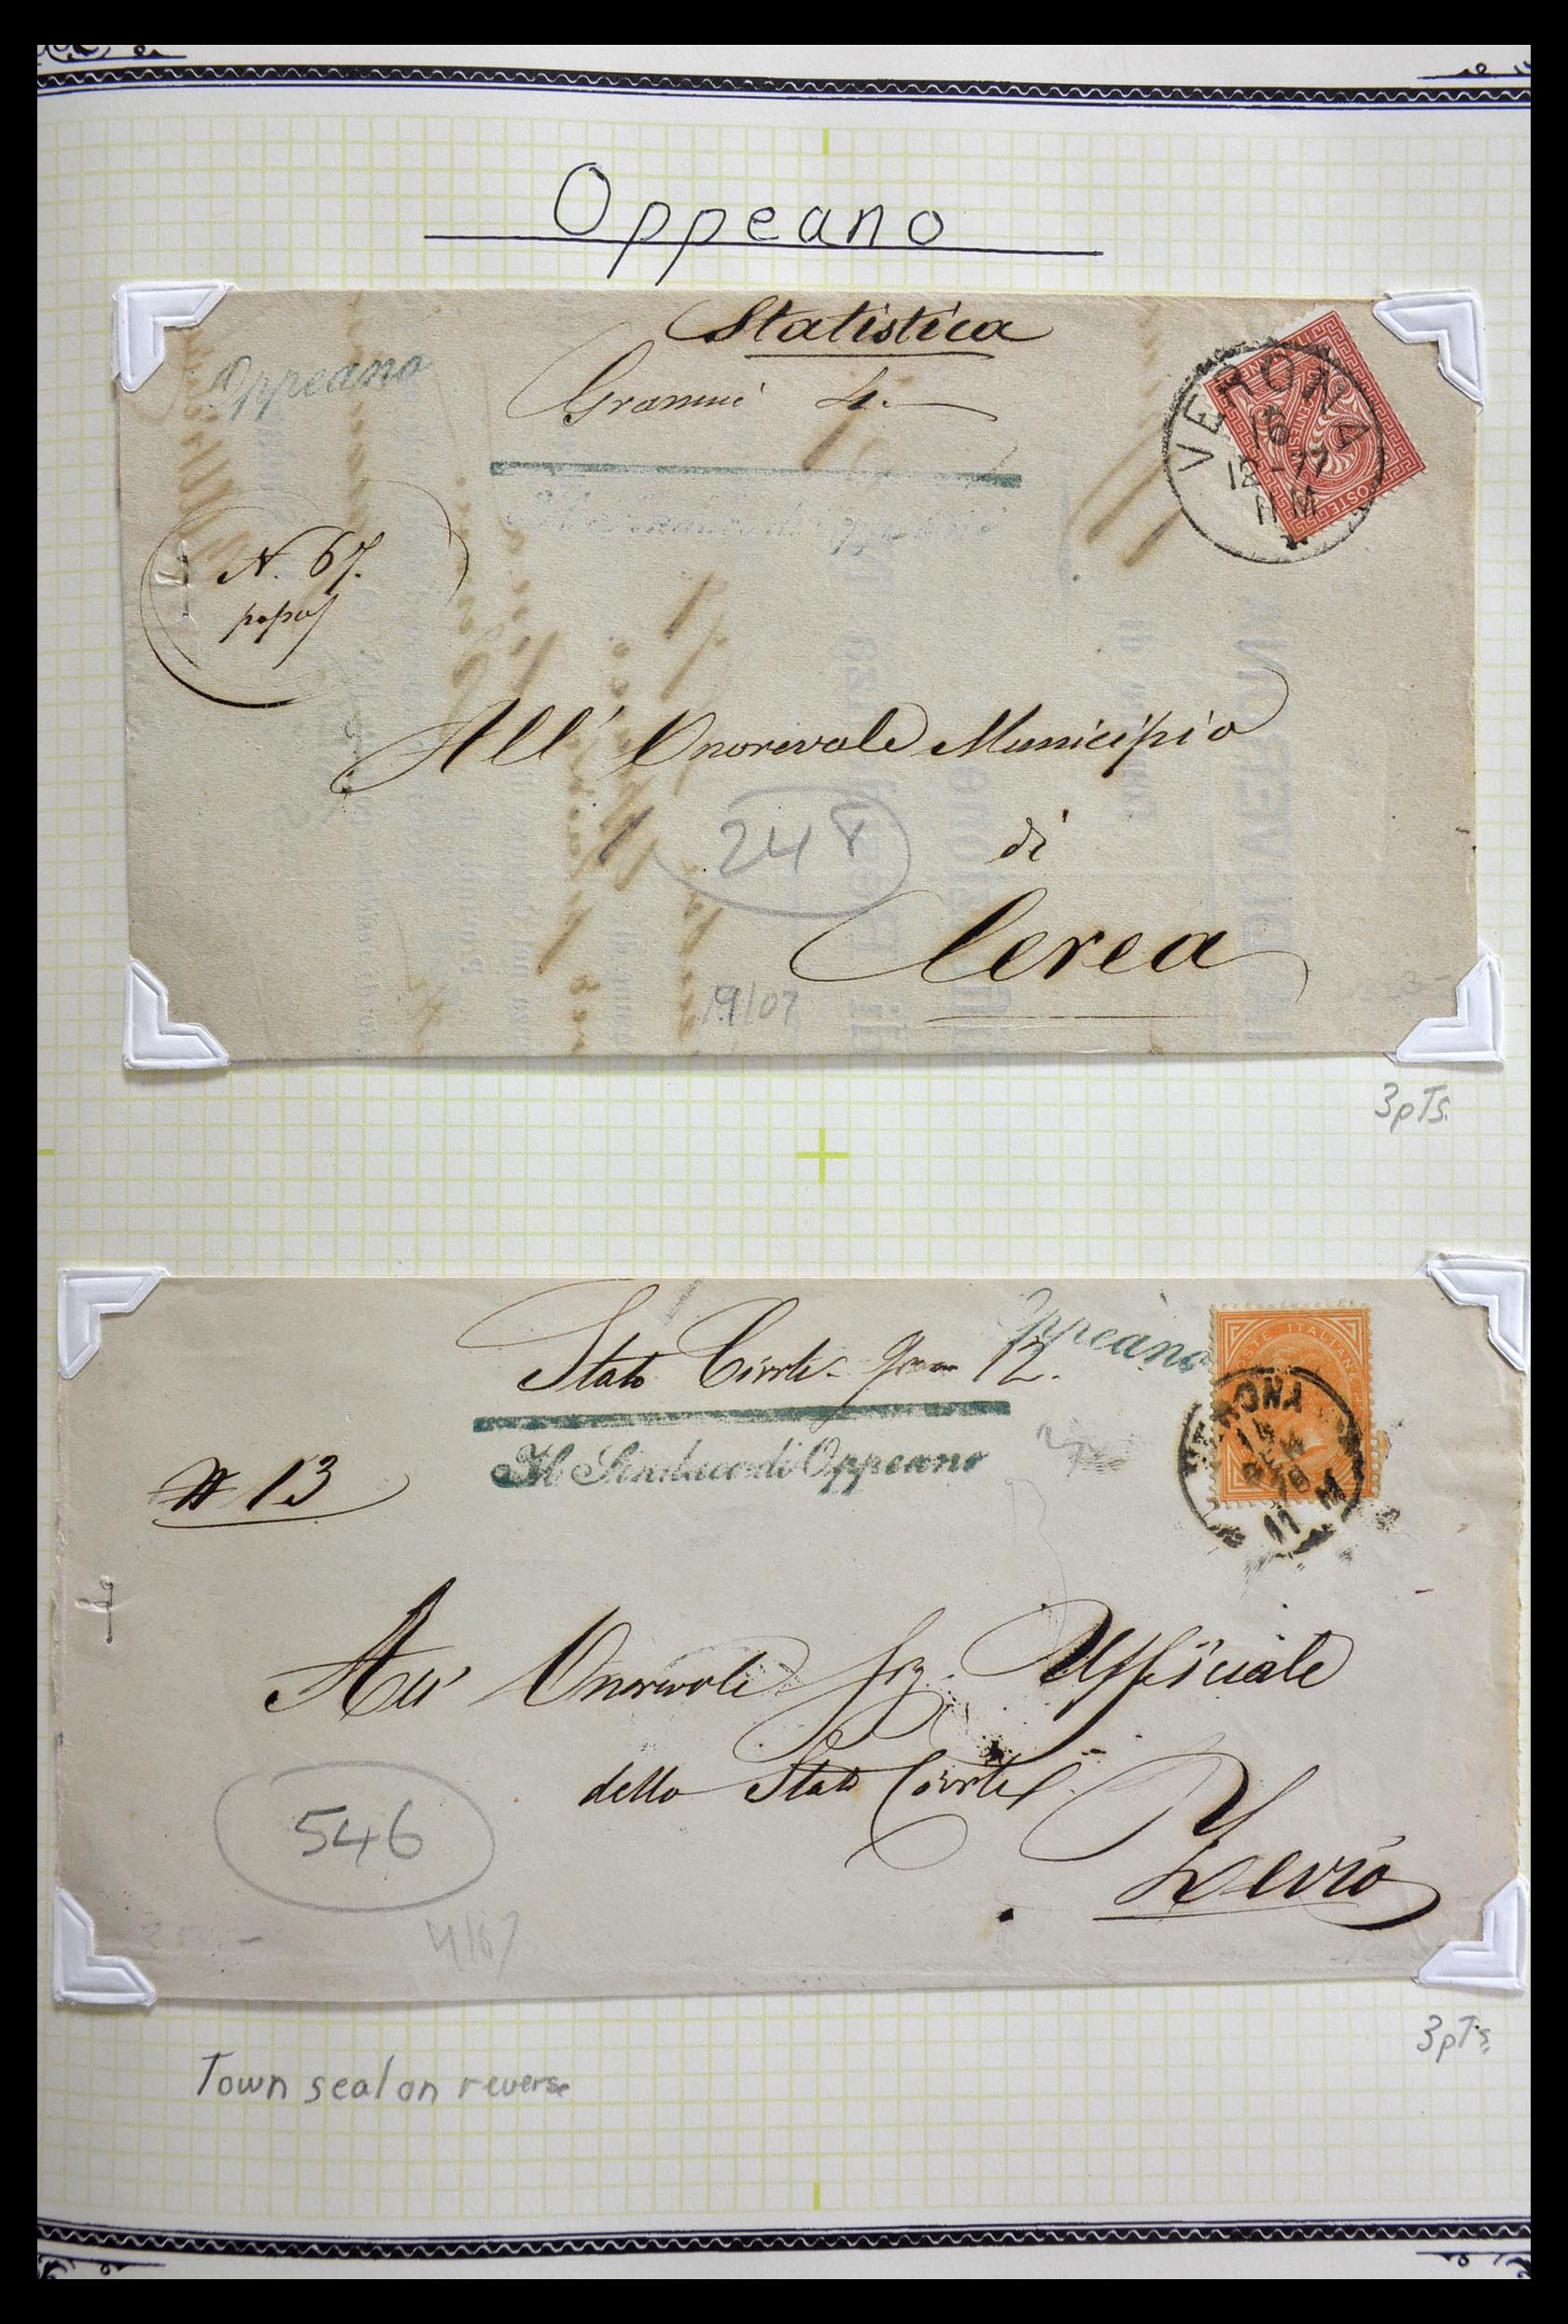 Oppeano
Statistica
Oppeano
Grammi 4.
VERONA
16
12-77
11 M
POSTE
N. 67.
All' Onorevole Municipio
di
248
Cerea
19/07
3pTs.
Oppeano
Stato Civile - Gram 12.
POSTE ITALIANE
VERONA
14
78
11 M
Il Sindaco di Oppeano
# 13
All' Onorevole fz. Ufficiale
dello Stato Civile
546
Zevio
4/67
3pTs
Town seal on reverse